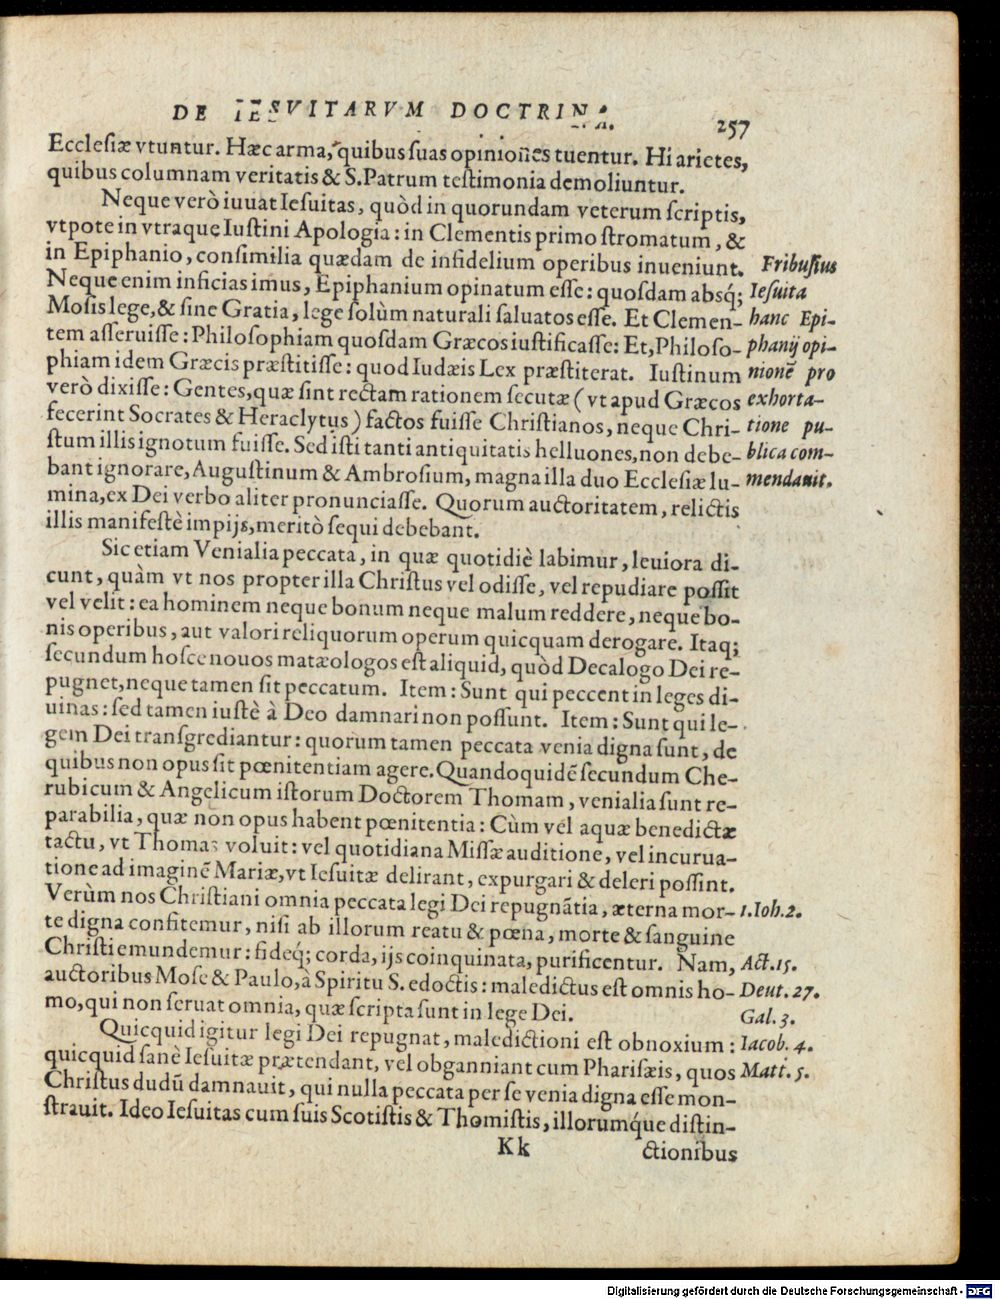 DE IESVITARVM DOCTRINA.
257
Ecclesiæ vtuntur. Hæc arma, quibus suas opiniones tuentur. Hi arietes,
quibus columnam veritatis & S. Patrum testimonia demoliuntur.
Neque verò iuuat Iesuitas, quòd in quorundam veterum scriptis,
vtpote in vtraque Iustini Apologia: in Clementis primo stromatum, &
in Epiphanio, consimilia quædam de infidelium operibus inueniunt.
Neque enim inficias imus, Epiphanium opinatum esse: quosdam absq́;
Mosis lege, & sine Gratia, lege solùm naturali saluatos esse. Et Clemen-
tem asseruisse: Philosophiam quosdam Græcos iustificasse: Et, Philoso-
phiam idem Græcis præstitisse: quod Iudæis Lex præstiterat. Iustinum
verò dixisse: Gentes, quæ sint rectam rationem secutæ (vt apud Græcos
fecerint Socrates & Heraclytus) factos fuisse Christianos, neque Chri-
stum illis ignotum fuisse. Sed isti tanti antiquitatis helluones, non debe-
bant ignorare, Augustinum & Ambrosium, magna illa duo Ecclesiæ lu-
mina, ex Dei verbo aliter pronunciasse. Quorum auctoritatem, relictis
illis manifestè impijs, meritò sequi debebant.
Fribusius
Iesuita
hanc Epi-
phanij opi-
nionẽ pro
exhorta-
tione pu-
blica com-
mendauit.
Sic etiam Venialia peccata, in quæ quotidiè labimur, leuiora di-
cunt, quàm vt nos propter illa Christus vel odisse, vel repudiare possit
vel velit: ea hominem neque bonum neque malum reddere, neque bo-
nis operibus, aut valori reliquorum operum quicquam derogare. Itaq;
secundum hosce nouos matæologos est aliquid, quòd Decalogo Dei re-
pugnet, neque tamen sit peccatum. Item: Sunt qui peccent in leges di-
uinas: sed tamen iustè à Deo damnari non possunt. Item: Sunt qui le-
gem Dei transgrediantur: quorum tamen peccata venia digna sunt, de
quibus non opus sit pœnitentiam agere. Quandoquidẽ secundum Che-
rubicum & Angelicum istorum Doctorem Thomam, venialia sunt re-
parabilia, quæ non opus habent pœnitentia: Cùm vel aquæ benedictæ
tactu, vt Thomas voluit: vel quotidiana Missæ auditione, vel incurua-
tione ad imaginẽ Mariæ, vt Iesuitæ delirant, expurgari & deleri possint.
Verùm nos Christiani omnia peccata legi Dei repugnãtia, æterna mor-
te digna confitemur, nisi ab illorum reatu & pœna, morte & sanguine
Christi emundemur: fideq́; corda, ijs coinquinata, purificentur. Nam,
auctoribus Mose & Paulo, à Spiritu S. edoctis: maledictus est omnis ho-
mo, qui non seruat omnia, quæ scripta sunt in lege Dei.
1. Ioh. 2.
Act. 15.
Deut. 27.
Gal. 3.
Quicquid igitur legi Dei repugnat, maledictioni est obnoxium:
quicquid sanè Iesuitæ prætendant, vel obganniant cum Pharisæis, quos
Christus dudũ damnauit, qui nulla peccata per se venia digna esse mon-
strauit. Ideo Iesuitas cum suis Scotistis & Thomistis, illorumq́ue distin-
Iacob. 4.
Matt. 5.
Kk
ctionibus
Digitalisierung gefördert durch die Deutsche Forschungsgemeinschaft - DFG